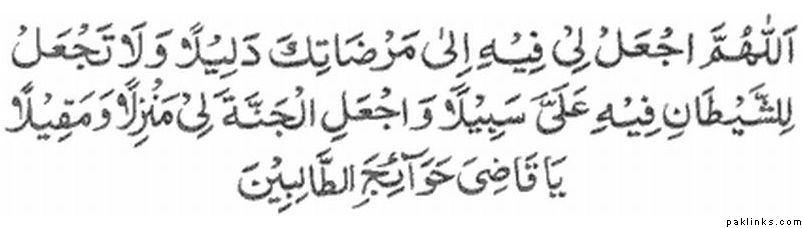 اَللّٰهُمَّ اجْعَلْ لِیْ فِیْهِ اِلٰی مَرْضَاتِكَ دَلِیْلًا وَلَا تَجْعَلْ
لِلشَّیْطَانِ فِیْهِ عَلَیَّ سَبِیْلًا وَاجْعَلِ الْجَنَّةَ لِیْ مَنْزِلًا وَمَقِیْلًا
یَا قَاضِیَ حَوَآئِجِ الطَّالِبِیْنَ
paklinks.com